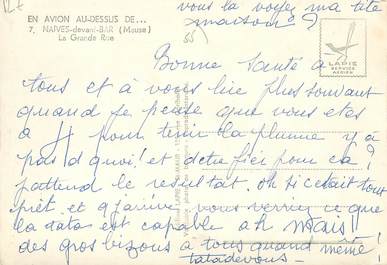 vous la voyez ma tête
maison ?
EN AVION AU-DESSUS DE...
7. NAIVES-devant-BAR (Meuse)
La Grande Rue
LAPIE
SERVICE
AERIEN
Bonne Santé à
tous et à vous lire plus souvant
quand je pense que vous etes
à 4 pour tenir la plume y a
pas d quoi! et detre fier pour ca?
jattend le resultat. oh si cetait tout
prêt et q j'arrive vous verriez ce que
la tata est capable ah mais!!
des gros bizous à tous quand même!
tatadevous